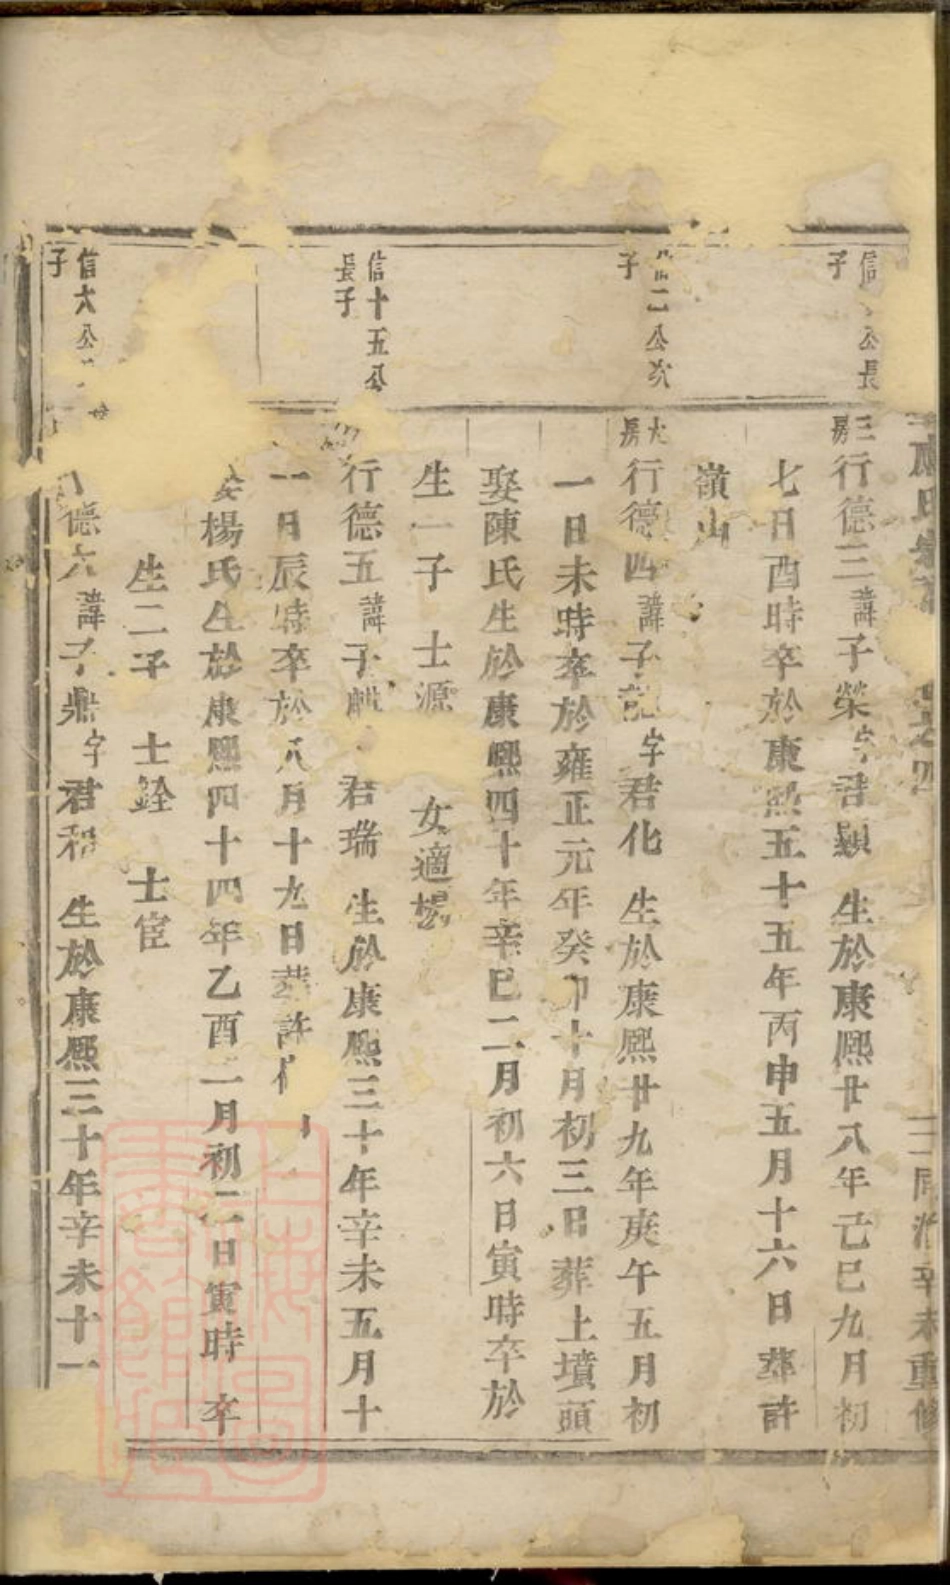 同治辛未重修
信 公長
子
三
房
行德三諱子榮字君顯 生於康熙廿八年己巳九月初
七日酉時卒於康熙五十五年丙申五月十六日葬許
嶺山
二公次
子
大
房
行德四諱子 字君化 生於康熙廿九年庚午五月初
一日未時卒於雍正元年癸卯十月初三日葬上墳頭
娶陳氏生於康熙四十年辛巳二月初六日寅時卒於
生一子 士源 女適楊
信十五公
長子
行德五諱子 君瑞 生於康熙三十年辛未五月十
一日辰時卒於八月十九日葬許
娶楊氏生於康熙四十四年乙酉 月初二日寅時 卒
生二子 士銓 士宦
信六公
子
德六諱子鼎字君和 生於康熙三十年辛未十一